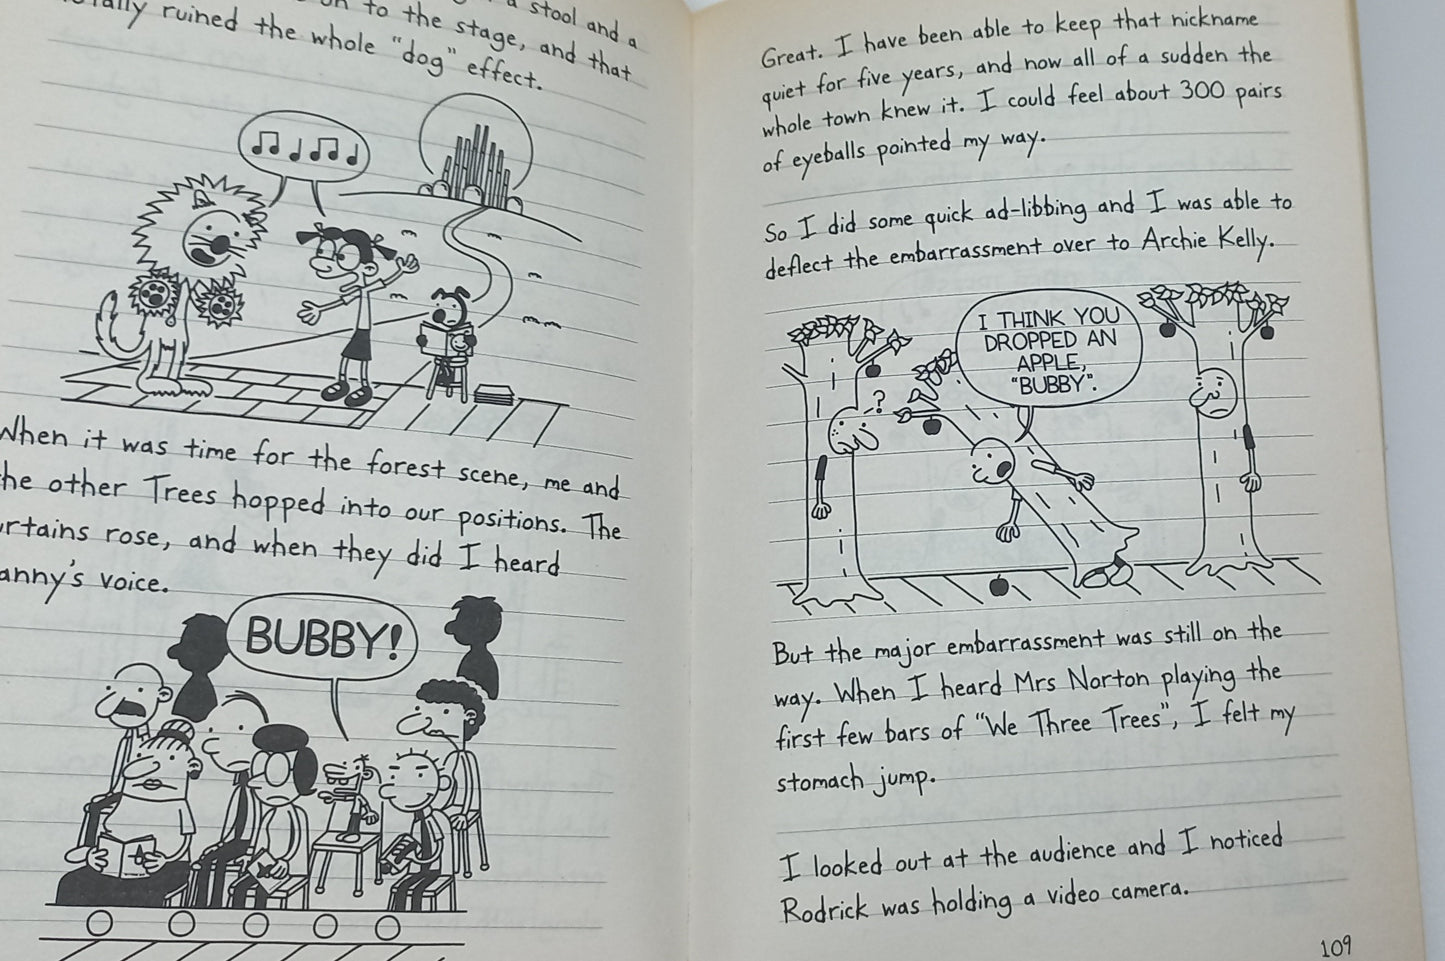 a stool and a
to the stage, and that
ruined the whole "dog" effect.
When it was time for the forest scene, me and
the other Trees hopped into our positions. The
curtains rose, and when they did I heard
Manny's voice.
BUBBY!
Great. I have been able to keep that nickname
quiet for five years, and now all of a sudden the
whole town knew it. I could feel about 300 pairs
of eyeballs pointed my way.
So I did some quick ad-libbing and I was able to
deflect the embarrassment over to Archie Kelly.
I THINK YOU
DROPPED AN
APPLE,
"BUBBY".
?
But the major embarrassment was still on the
way. When I heard Mrs Norton playing the
first few bars of "We Three Trees", I felt my
stomach jump.
I looked out at the audience and I noticed
Rodrick was holding a video camera.
109